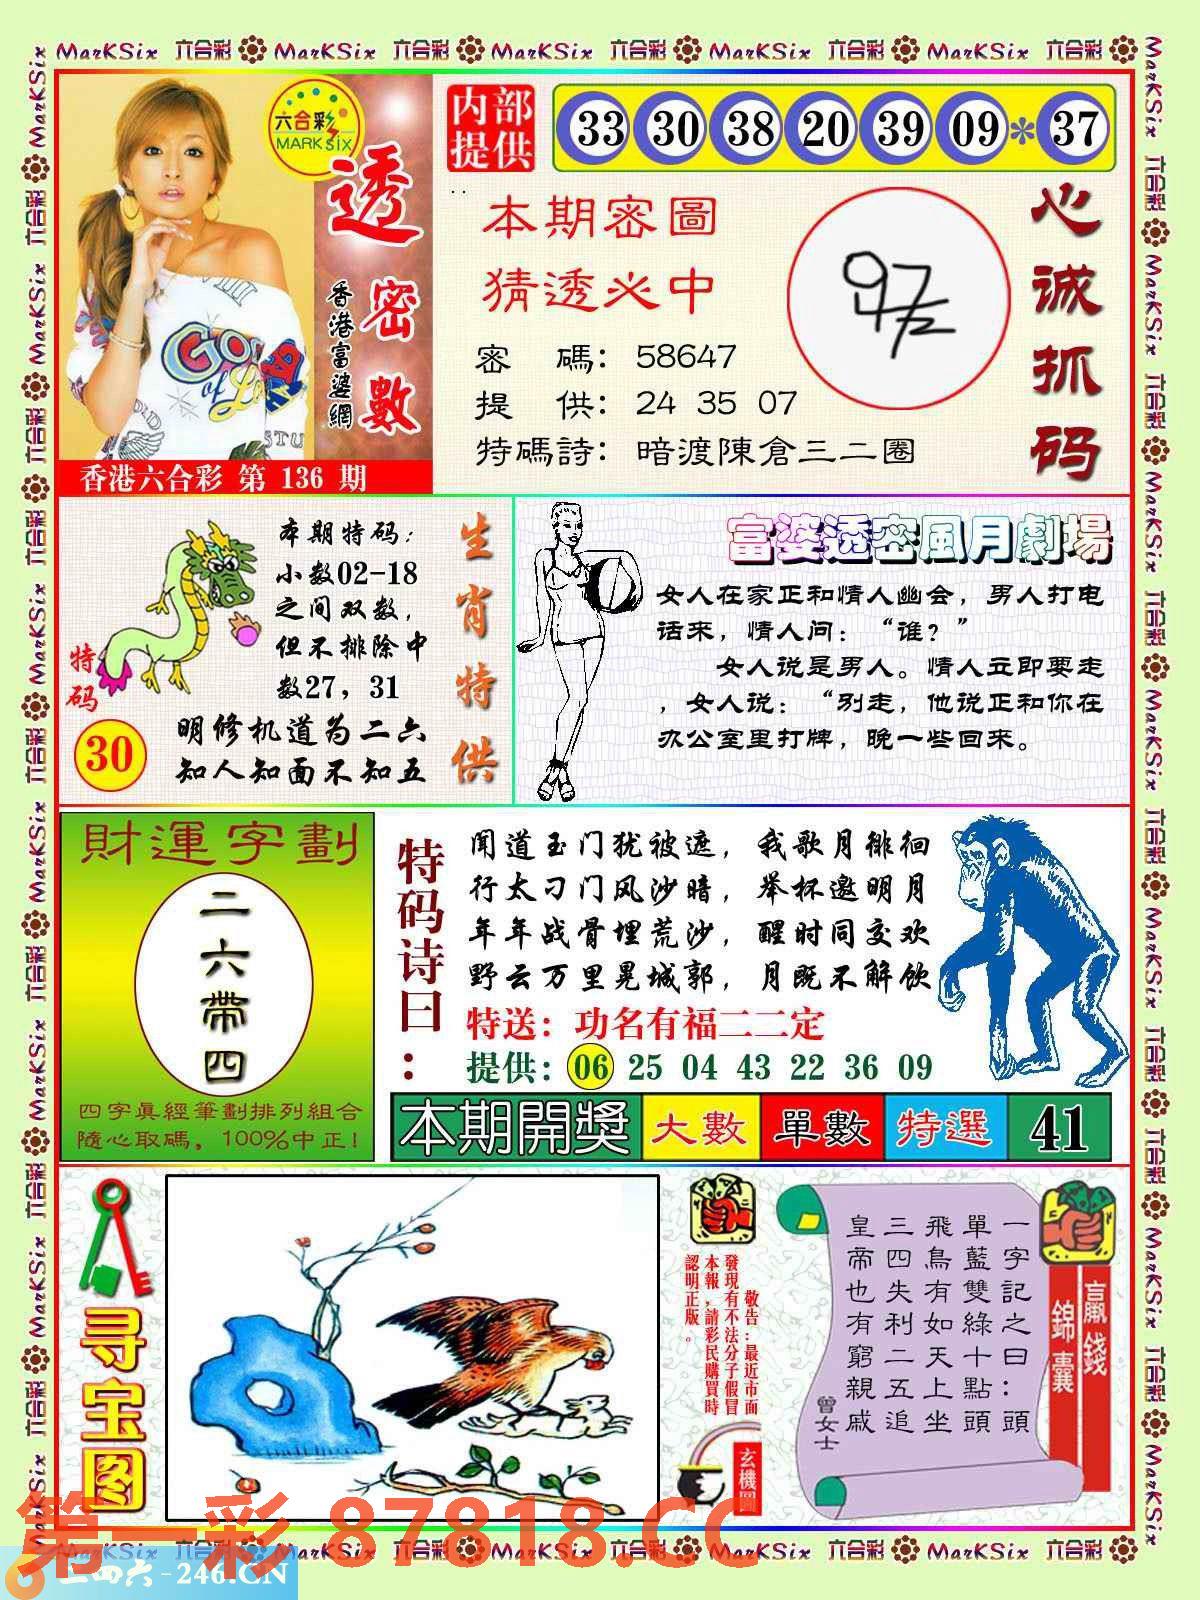 MarKSix 六合彩 MarKSix 六合彩 MarKSix 六合彩 MarKSix 六合彩 MarKSix 六合彩
六合彩
MARK SIX
透密數
香港富婆網
香港六合彩 第 136 期
内部提供
33 30 38 20 39 09 * 37
本期密圖
猜透必中
密 碼: 58647
提 供: 24 35 07
特碼詩: 暗渡陳倉三二圈
心诚抓码
本期特码:
小数02-18
之间双数,
但不排除中
数27,31
特码
30
明修机道为二六
知人知面不知五
生肖特供
富婆透密風月劇場
女人在家正和情人幽会，男人打电
话来，情人问：“谁？”
女人说是男人。情人立即要走
，女人说：“别走，他说正和你在
办公室里打牌，晚一些回来。
財運字劃
二六帶四
四字眞經筆劃排列組合
隨心取碼，100%中正!
特码诗曰:
闻道玉门犹被遮，我歌月徘徊
行太刁门风沙暗，举杯邀明月
年年战骨埋荒沙，醒时同交欢
野云万里晃城郭，月既不解饮
特送：功名有福二二定
提供：06 25 04 43 22 36 09
本期開獎 大數 單數 特選 41
寻宝图
敬告：最近市面
發現有不法分子假冒
本報，請彩民購買時
認明正版。
玄機圖
一字記之曰：頭
單藍雙綠十點頭
飛鳥有如天上坐
三四失利二五追
皇帝也有窮親戚
曾女士
贏錢
錦囊
第一彩 87818.CC
二四六-246.CN
MarKSix 六合彩 MarKSix 六合彩 MarKSix 六合彩 MarKSix 六合彩 MarKSix 六合彩